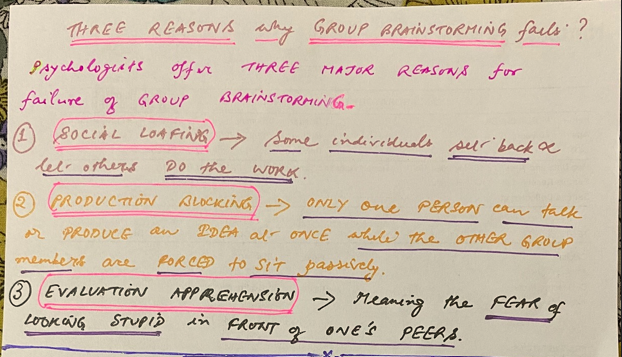 THREE REASONS why GROUP BRAINSTORMING fails?
Psychologists offer THREE MAJOR REASONS for
failure of GROUP BRAINSTORMING.
① SOCIAL LOAFING → Some individuals sit back &
let others DO the WORK.
② PRODUCTION BLOCKING → ONLY one PERSON can talk
or PRODUCE an IDEA at ONCE while the OTHER GROUP
members are FORCED to SIT passively.
③ EVALUATION APPREHENSION → Meaning the FEAR of
LOOKING STUPID in FRONT of ONE'S PEERS.